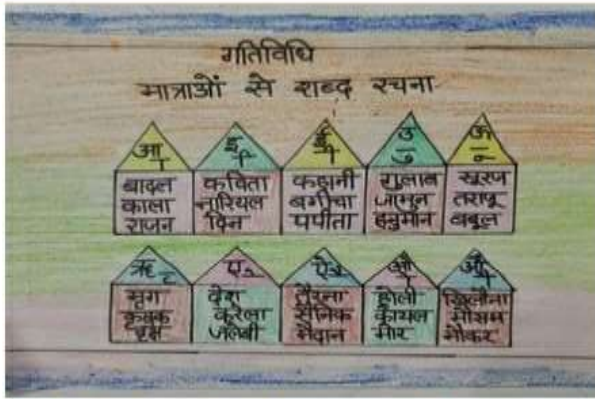 गतिविधि
मात्राओं से शब्द रचना
आ ा
इ ि
ई ी
उ ु
ऊ ू
बादल
काला
राजन
कविता
नारियल
कहानी
बगीचा
पपीता
गुलाब
जामुन
हनुमान
सूरज
तराजू
बबूल
ऋ ृ
ए े
ऐ ै
औ
मृग
कृषक
वृक्ष
करेला
जलेबी
तैरना
सैनिक
मैदान
होली
कोयल
मोर
खिलौना
मौसम